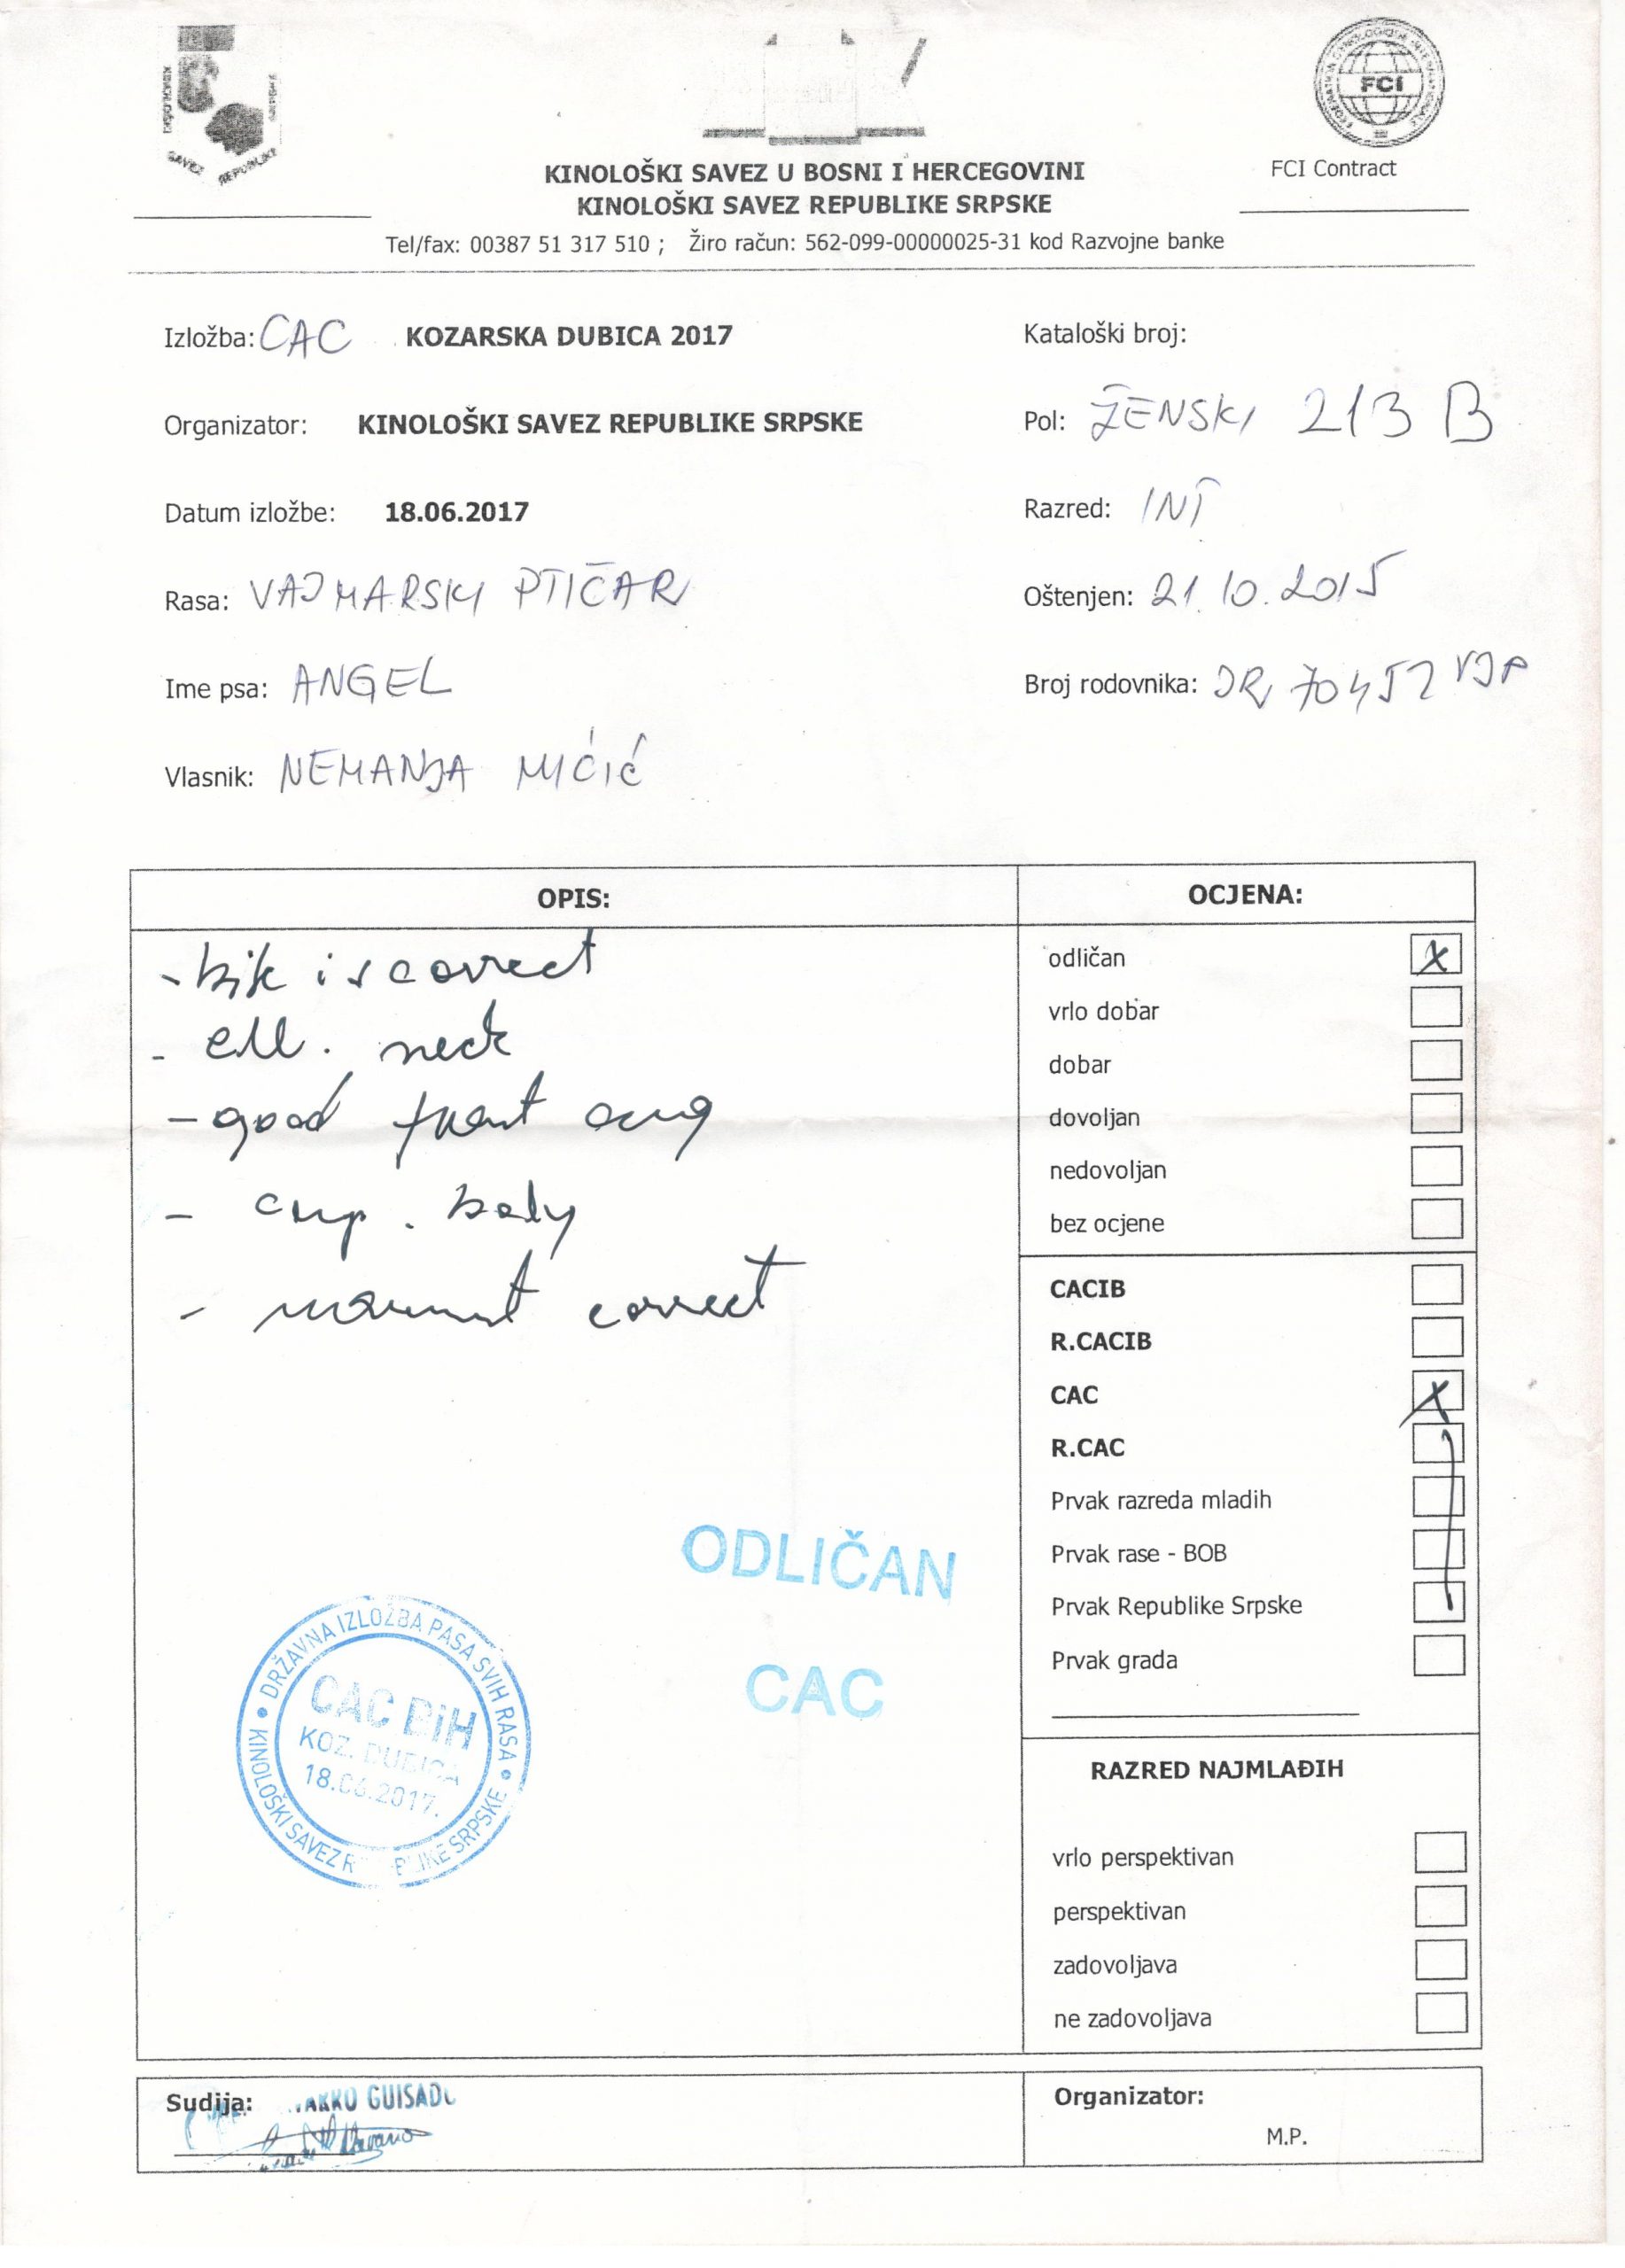 SAVEZ REPUBLIKE
FCI
FCI Contract
KINOLOŠKI SAVEZ U BOSNI I HERCEGOVINI
KINOLOŠKI SAVEZ REPUBLIKE SRPSKE
Tel/fax: 00387 51 317 510 ; Žiro račun: 562-099-00000025-31 kod Razvojne banke
Izložba: CAC KOZARSKA DUBICA 2017
Kataloški broj:
Organizator: KINOLOŠKI SAVEZ REPUBLIKE SRPSKE
Pol: ŽENSKI 213 B
Datum izložbe: 18.06.2017
Razred: INT
Rasa: VAJMARSKI PTIČAR
Oštenjen: 21.10.2015
Ime psa: ANGEL
Broj rodovnika: JR 70452 VJP
Vlasnik: NEMANJA MIĆIĆ
OPIS:
- is correct
- neck
- good front
- body
- correct
ODLIČAN
CAC
DRŽAVNA IZLOŽBA PASA SVIH RASA
KINOLOŠKI SAVEZ REPUBLIKE SRPSKE
CAC BiH
KOZ. DUBICA
18.06.2017.
OCJENA:
odličan X
vrlo dobar
dobar
dovoljan
nedovoljan
bez ocjene
CACIB
R.CACIB
CAC X
R.CAC
Prvak razreda mladih
Prvak rase - BOB
Prvak Republike Srpske
Prvak grada
RAZRED NAJMLAĐIH
vrlo perspektivan
perspektivan
zadovoljava
ne zadovoljava
Sudija:
Organizator:
M.P.